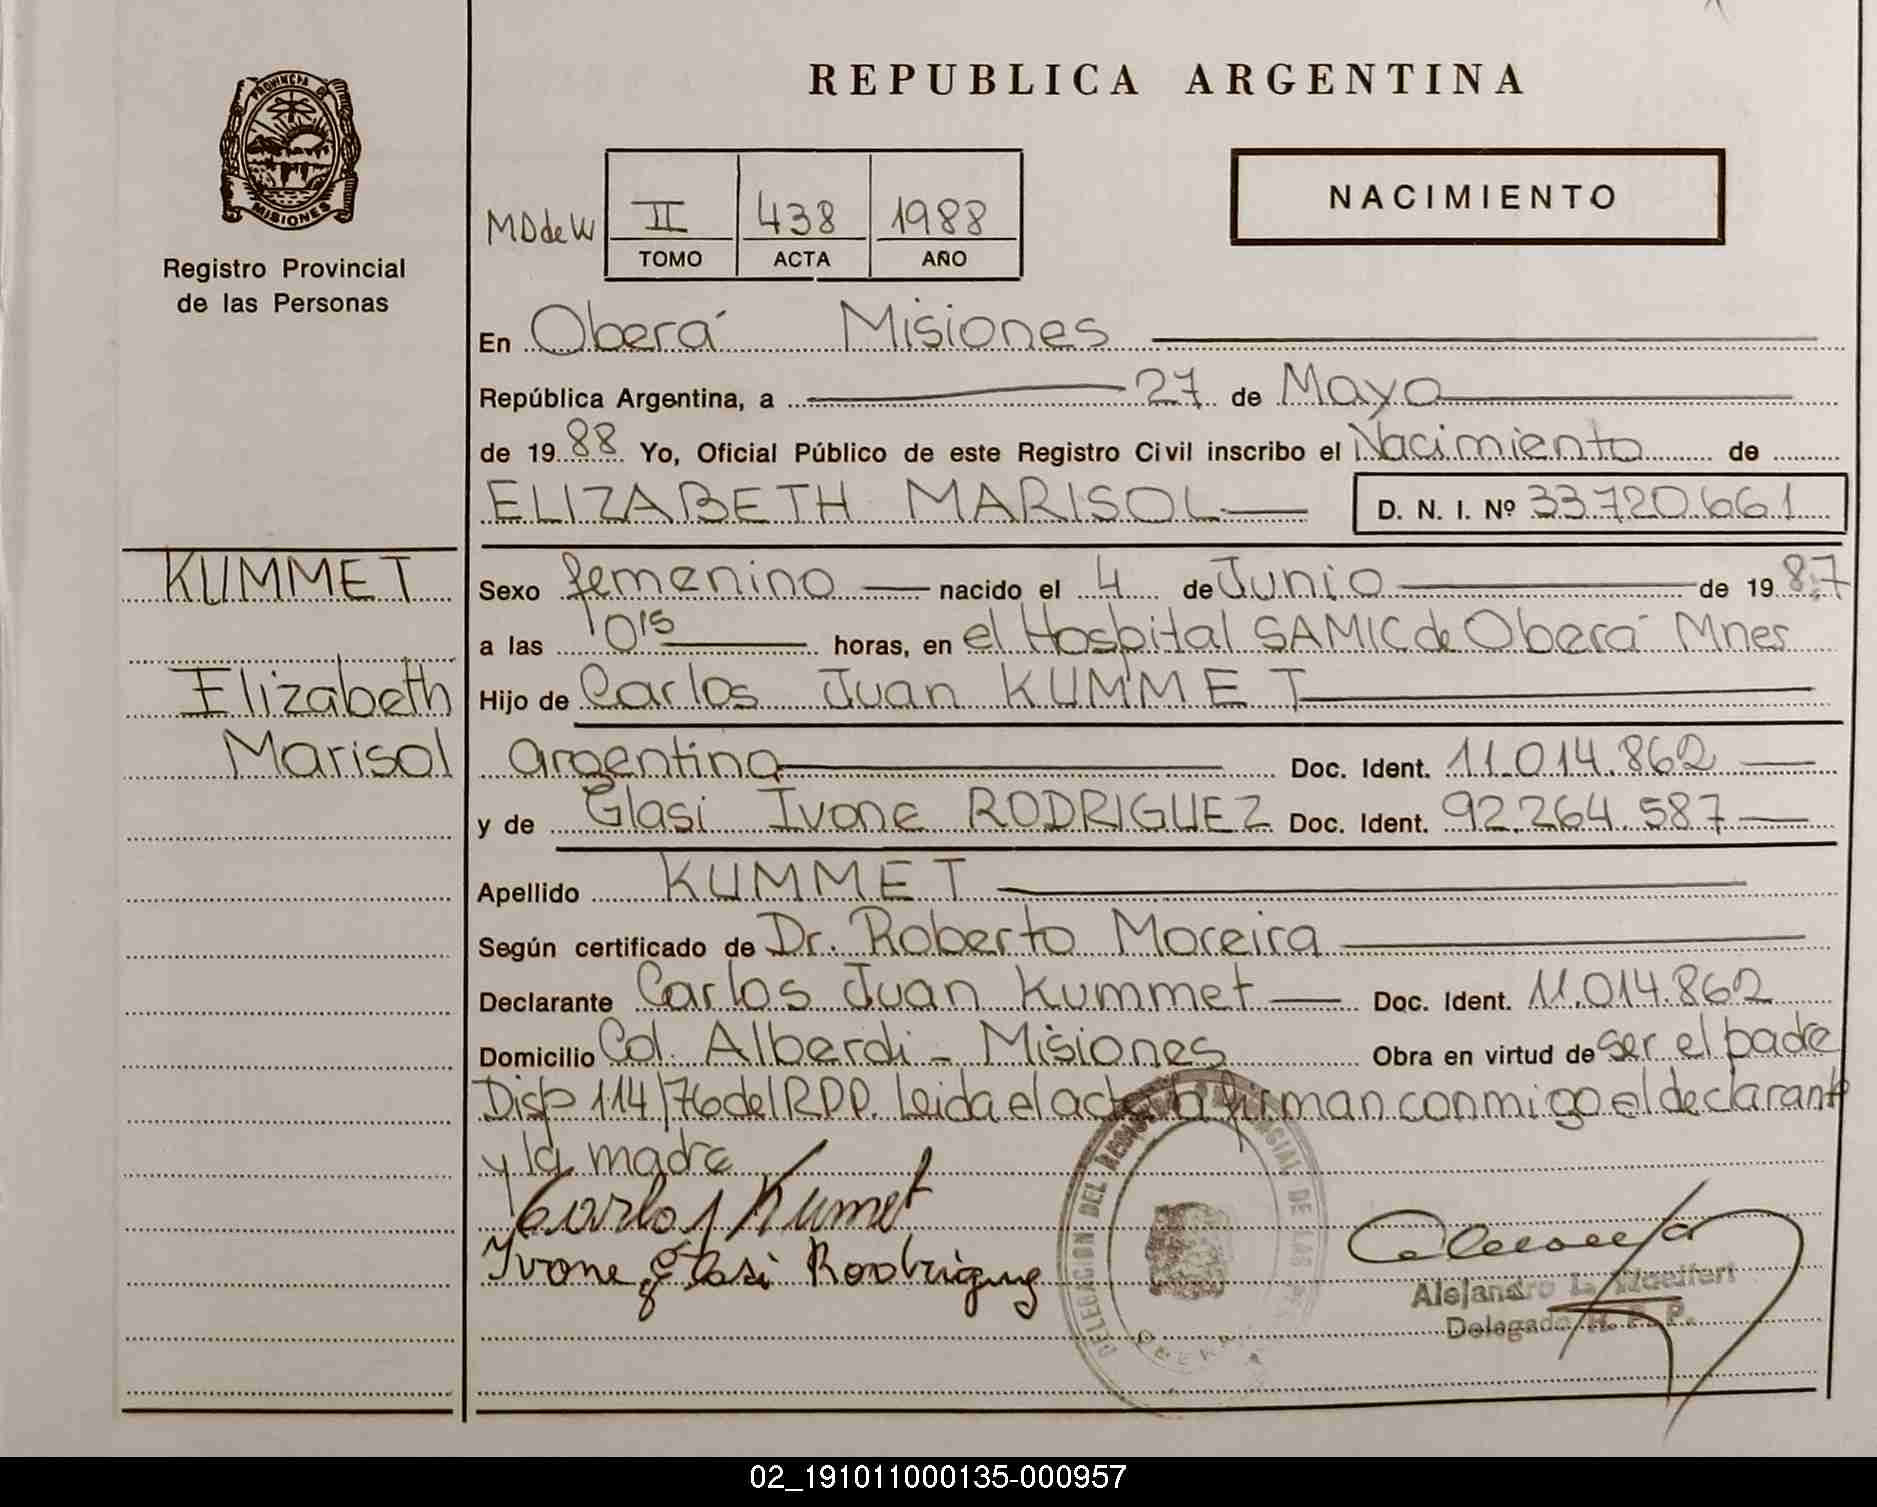 REPUBLICA ARGENTINA
PROVINCIA DE
MISIONES
Registro Provincial
de las Personas
MDdeW
II 438 1988
TOMO ACTA AÑO
NACIMIENTO
En Oberá Misiones
República Argentina, a 27 de Mayo
de 1988 Yo, Oficial Público de este Registro Civil inscribo el Nacimiento de
ELIZABETH MARISOL D. N. I. Nº 33.720.661
KUMMET
Elizabeth
Marisol
Sexo femenino nacido el 4 de Junio de 1987
a las 10¹⁵ horas, en el Hospital SAMIC de Oberá Mnes
Hijo de Carlos Juan KUMMET
argentina Doc. Ident. 11.014.862
y de Glasi Ivone RODRIGUEZ Doc. Ident. 92.264.587
Apellido KUMMET
Según certificado de Dr. Roberto Moreira
Declarante Carlos Juan Kummet Doc. Ident. 11.014.862
Domicilio Col. Alberdi - Misiones Obra en virtud de ser el padre
Disp 114/76 del R.P.P. Leida el acta la firman conmigo el declarante
y la madre
Carlos J Kumet
Ivone Glasi Rodriguez
DELEGACION DEL REGISTRO PROVINCIAL DE LAS
Alejandro L.
Delegado R. P. P.
02_191011000135-000957